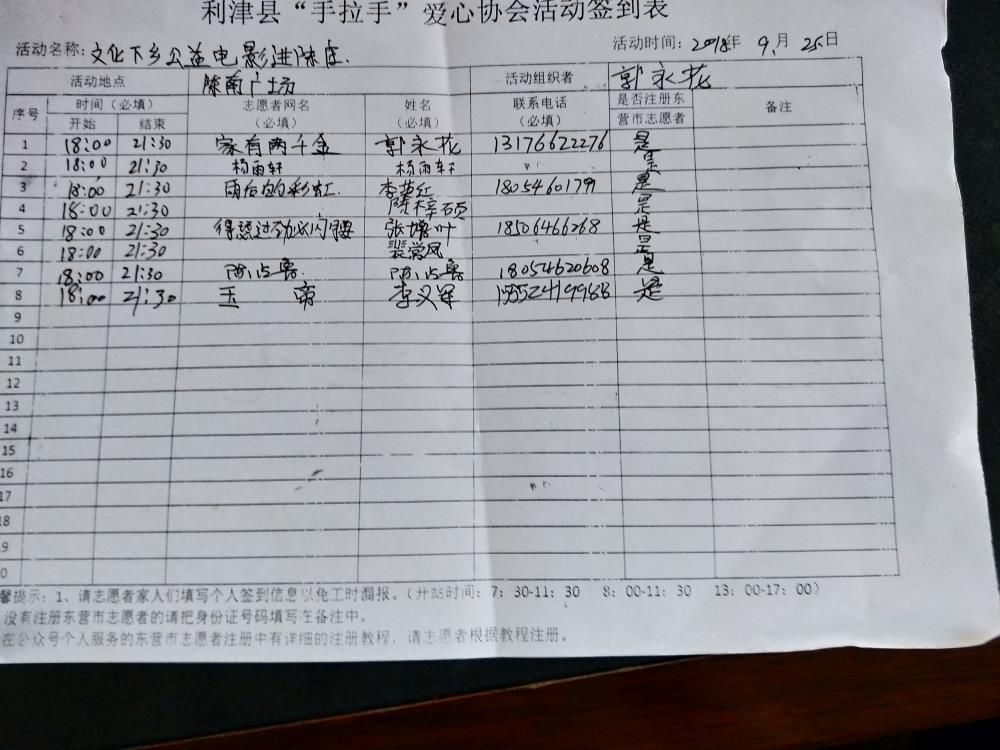 利津县“手拉手”爱心协会活动签到表
活动名称：文化下乡公益电影进陈庄. 活动时间：2018年 9月 25日
活动地点 陈南广场 活动组织者 郭永花
序号 时间（必填） 志愿者网名（必填） 姓名（必填） 联系电话（必填） 是否注册东营市志愿者 备注
开始 结束
1 18:00 21:30 家有两千金 郭永花 13176622276 是
2 18:00 21:30 杨雨轩 杨雨轩 是
3 18:00 21:30 雨后的彩虹. 李 红 18054601799 是
4 18:00 21:30 陈梓硕 是
5 18:00 21:30 得瑟过劲必闪腰 张 叶 18506466268 是
6 18:00 21:30 裴 风 是
7 18:00 21:30 陈占 陈占 18054620608 是
8 18:00 21:30 玉帝 李义军 15552419988 是
9
10
11
12
13
14
15
16
17
18
9
0
馨提示：1、请志愿者家人们填写个人签到信息以免工时漏报。（开站时间：7：30-11：30 8：00-11：30 13：00-17：00）
没有注册东营市志愿者的请把身份证号码填写在备注中。
在公众号个人服务的东营市志愿者注册中有详细的注册教程，请志愿者根据教程注册。